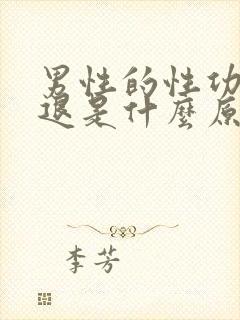 男性的性功
退是什麼原
李芳